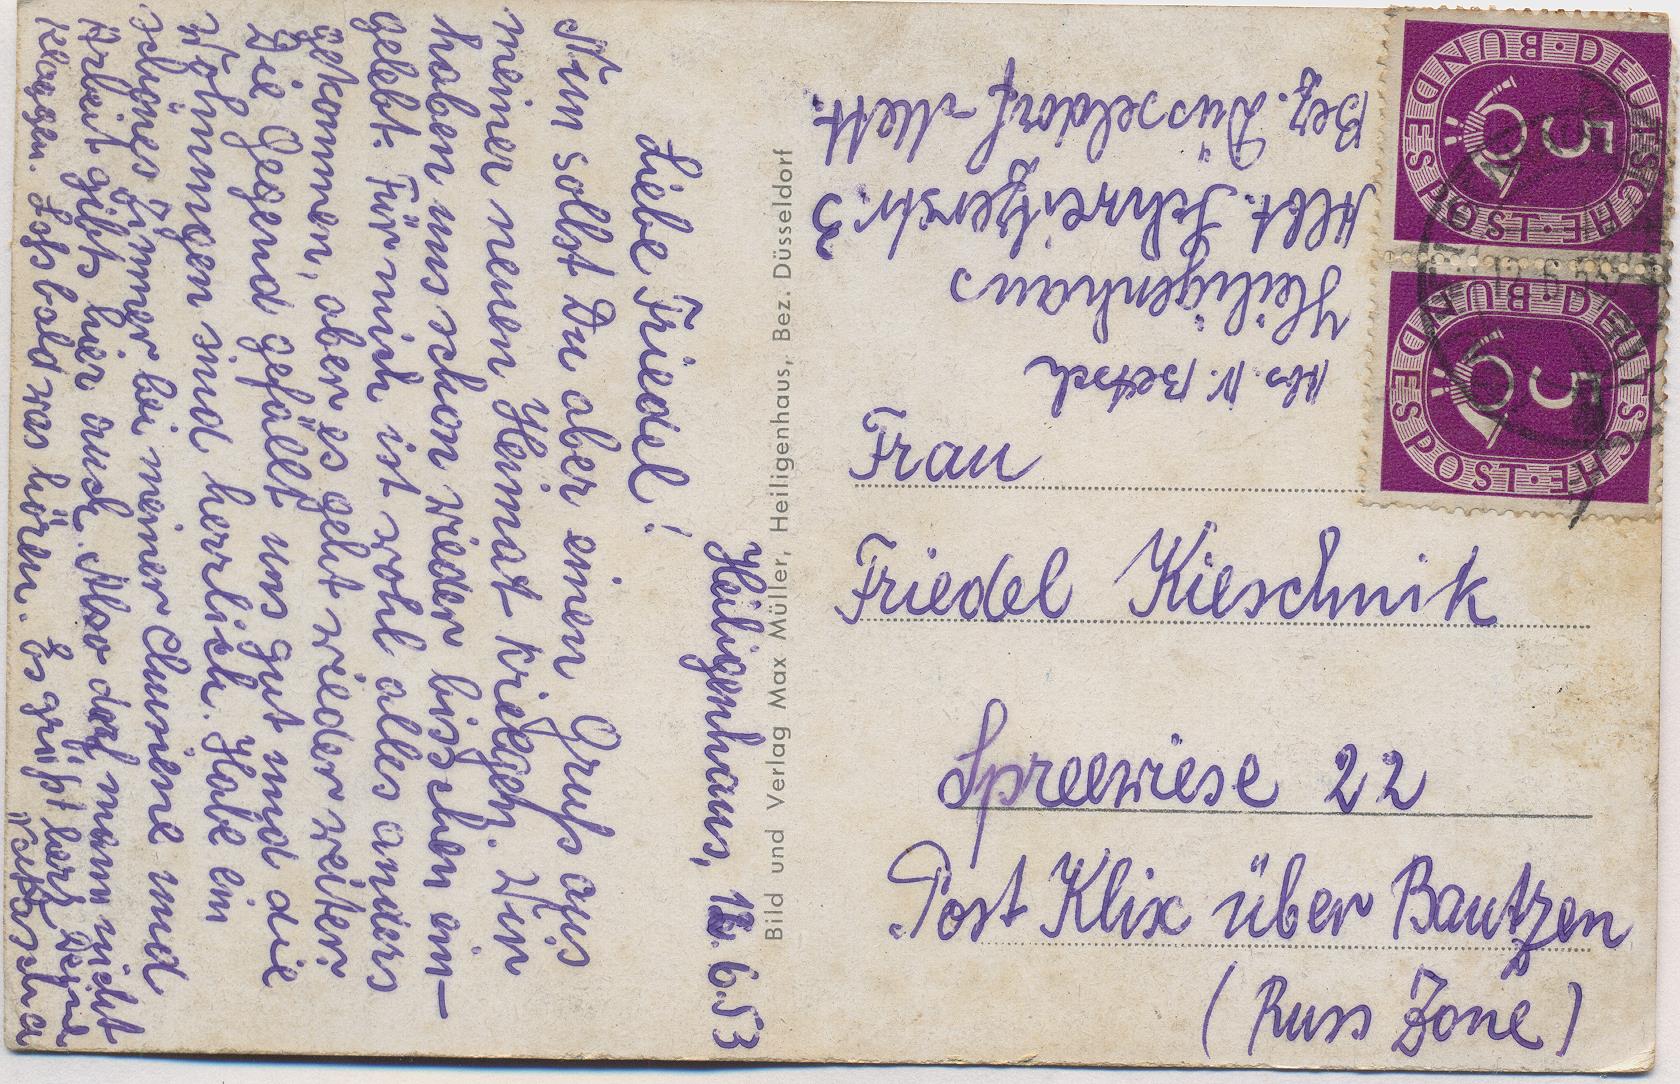 Heiligenhaus, 12.6.53
Liebe Friedel!
Nun sollst Du aber einen Gruß aus
meiner neuen Heimat kriegen. Wir
haben uns schon wieder bisschen ein-
gelebt. Für mich ist wohl alles anders
gekommen, aber es geht wieder weiter.
Die Gegend gefällt uns gut und die
Wohnungen sind herrlich. Habe ein
schönes Zimmer bei meiner Cousine und
Arbeit gibts hier auch. Also darf man nicht
klagen. Lass bald was hören. Es grüßt herz. Deine
Bild und Verlag Max Müller, Heiligenhaus, Bez. Düsseldorf
Abs. N. Betsch
Heiligenhaus
Abt. Schreitzerstr. 3
Bez. Düsseldorf-Mett.
DEUTSCHE BUNDESPOST
5
DEUTSCHE BUNDESPOST
5
Frau
Friedel Kieschnik
Spreewiese 22
Post Klix über Bautzen
(Russ Zone)